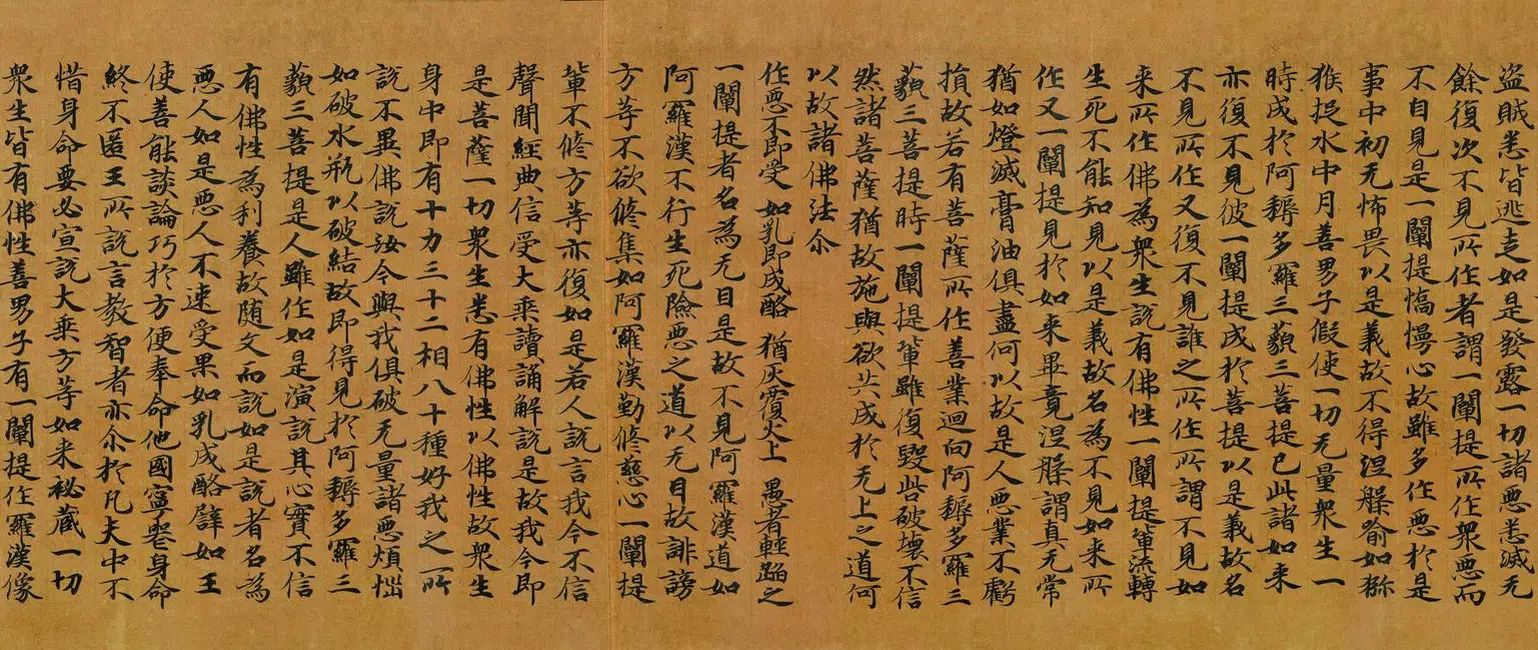 盜賊悉皆逃走如是發露一切諸惡悉滅无
餘復次不見所作者謂一闡提所作衆惡而
不自見是一闡提憍慢心故雖多作惡於是
事中初无怖畏以是義故不得涅槃喻如獼
猴捉水中月善男子假使一切无量衆生一
時成於阿耨多羅三藐三菩提已此諸如來
亦復不見彼一闡提成於菩提以是義故名
不見所作又復不見誰之所作所謂不見如
来所作佛為衆生說有佛性一闡提軰流轉
生死不能知見以是義故名為不見如来所
作又一闡提見於如来畢竟涅槃謂真无常
猶如燈滅膏油俱盡何以故是人惡業不虧
損故若有菩薩所作善業迴向阿耨多羅三
藐三菩提時一闡提軰雖復毀呰破壞不信
然諸菩薩猶故施與欲共成於无上之道何
以故諸佛法尒
作惡不即受 如乳即成酪 猶灰覆火上 愚者輕蹈之
一闡提者名為无目是故不見阿羅漢道如
阿羅漢不行生死險惡之道以无目故誹謗
方等不欲脩集如阿羅漢勤脩慈心一闡提
軰不脩方等亦復如是若人說言我今不信
聲聞經典信受大乘讀誦解說是故我今即
是菩薩一切衆生悉有佛性以佛性故衆生
身中即有十力三十二相八十種好我之所
說不異佛說汝今與我俱破无量諸惡煩惱
如破水瓶以破結故即得見於阿耨多羅三
藐三菩提是人雖作如是演說其心實不信
有佛性為利養故隨文而說如是說者名為
惡人如是惡人不速受果如乳成酪譬如王
使善能談論巧於方便奉命他國寧喪身命
終不匿王所說言教智者亦尒於凡夫中不
惜身命要必宣說大乘方等如来秘藏一切
衆生皆有佛性善男子有一闡提作羅漢像